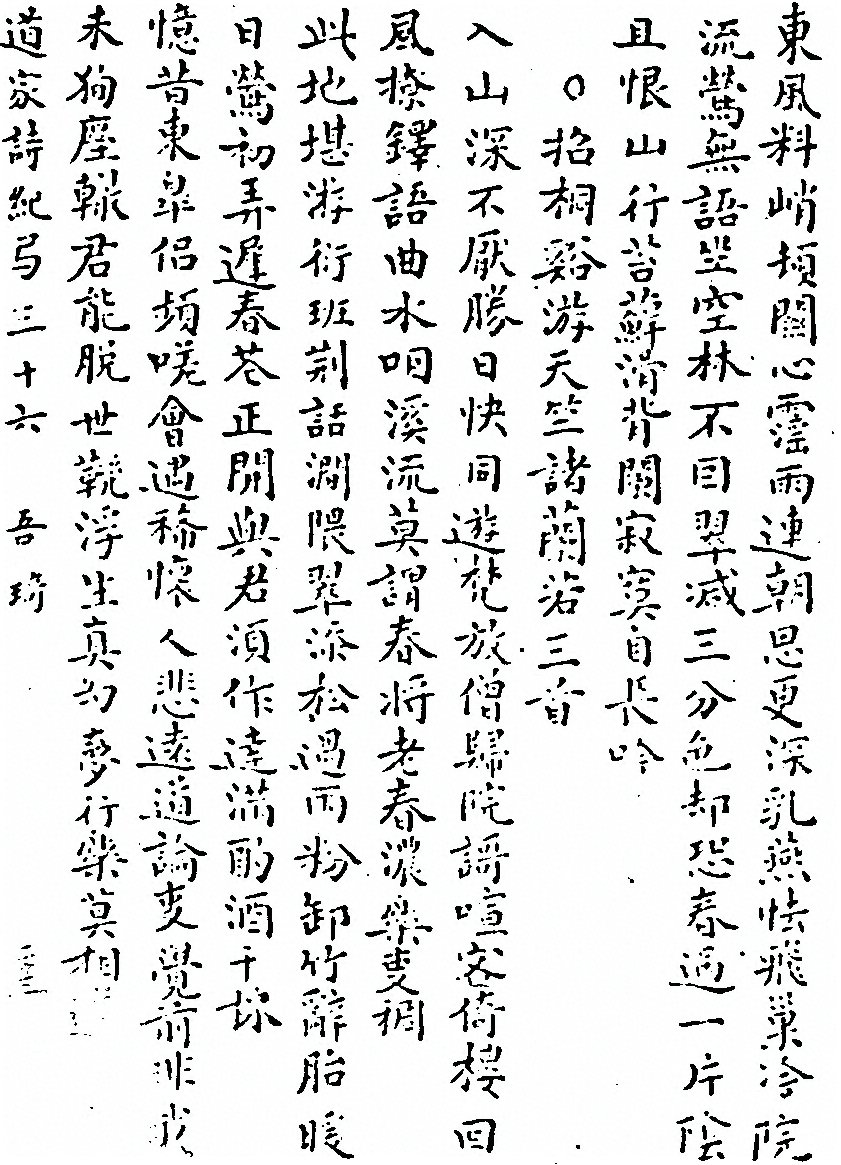 東風料峭頻關心靈雨連朝思更深乳燕怯飛巢冷院
流鶯無語坐空林不因翠減三分色却恐春過一片陰
且恨山行苔蘚滑背闌寂寞自長吟
○招桐谿游天竺諸蘭若三首
入山深不厭勝日快同遊梵放僧歸院謌喧客倚樓回
風撩鐸語曲水咽溪流莫謂春將老春濃樂更稠
此地堪游衍班荊話澗隈翠添松過雨粉卸竹辭胎暖
日鶯初弄遲春花正開與君須作達滿酌酒千
憶昔東皋侶頻嗟會遇稀懷人悲遠道論更覺前非我
未狥塵鞅君能脫世鞿浮生真幻夢行樂莫相
道家詩紀弓三十六 吾琦